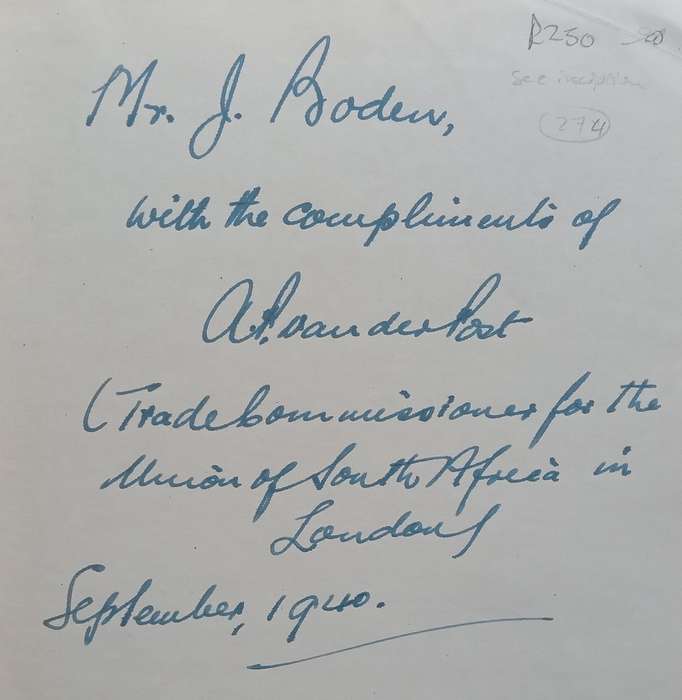 R250
See inscription
274
Mr. J. Boden,
with the compliments of
A.P. van der Post
(Trade Commissioner for the
Union of South Africa in
London)
September, 1940.